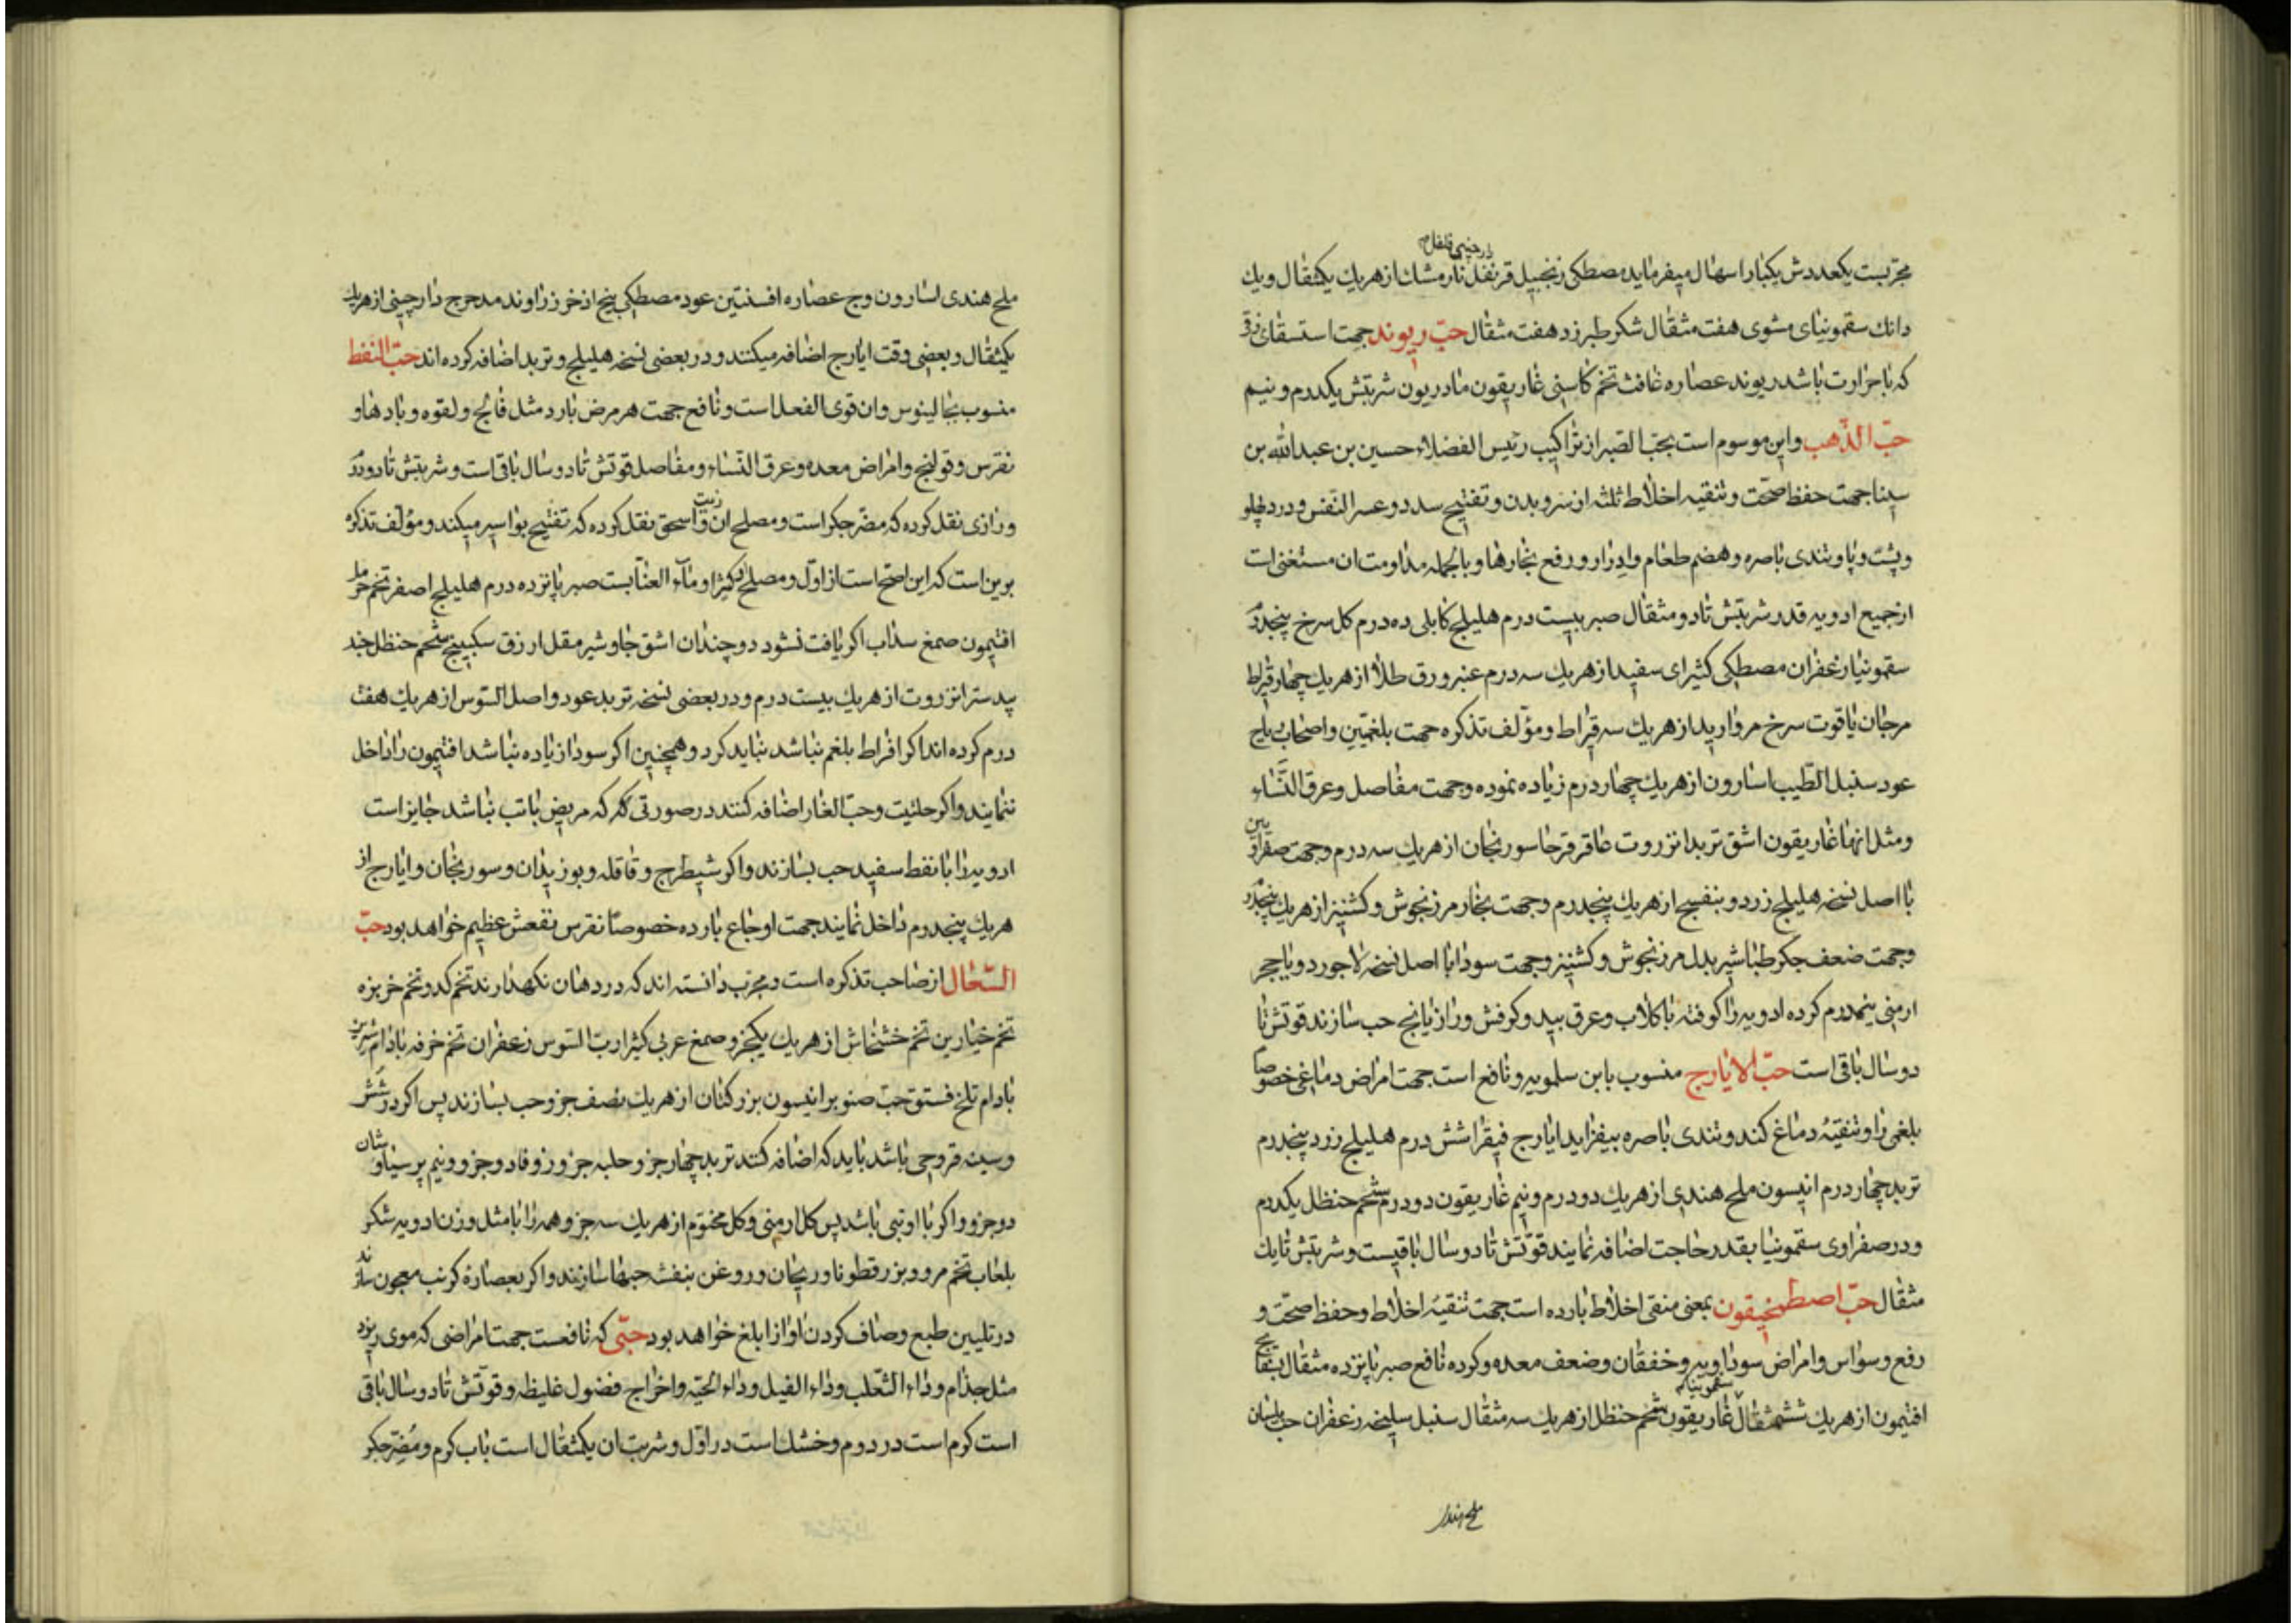 دارچینی فلفل
مجربست یکعددش یکبار اسهال میفرماید مصطکی زنجبیل قرنفل نارمشك از هریك یکمثقال ویك
دانك سقمونیای مشوی هفت مثقال شکر طبرزد هفت مثقال حبّ ریوند جهت استسقای زقی
که باحرارت باشد ریوند عصاره غافث تخم کاسنی غاریقون مادریون شربتش یکدرم ونیم
حبّ الذّهب واین موسوم است بحبّ الصّبر از تراکیب رئیس الفضلاء حسین بن عبدالله بن
سینا جهت حفظ صحّت وتنقیه اخلاط ثلثه از سر وبدن وتفتیح سدد وعسر النّفس ودرد پهلو
وپشت وپا وتندی باصره وهضم طعام وادرار ورفع بخارها وبالجمله مداومت ان مستغنی است
از جمیع ادویه قدر شربتش تا دو مثقال صبر بیست درم هلیلج کابلی ده درم کل سرخ پنجدرم
سقمونیا زعفران مصطکی کثیرای سفید از هریك سه درم عنبر ورق طلا از هریك چهار قیراط
مرجان یاقوت سرخ مروارید از هریك سه قیراط ومؤلف تذکره جهت بلغمیّین واصحاب ریاح
عود سنبل الطّیب اسارون از هریك چهار درم زیاده نموده وجهت مفاصل وعرق النّساء
ومثل انها غاریقون اشق تربد انزروت عاقرقرحا سورنجان از هریك سه درم وجهت صفراویین
با اصل نسخه هلیلج زرد وبنفسج از هریك پنجدرم وجهت بخار مرزنجوش وکشنیز از هریك پنجدرم
وجهت ضعف جکر طباشیر بدل مرزنجوش وکشنیز وجهت سودا با اصل نسخه لاجورد ویاحجر
ارمنی نیمدرم کرده ادویه را کوفته باکلاب وعرق بید وکرفش ورازیانج حب سازند قوتش تا
دوسال باقی است حبّ الایارج منسوب بابن سلمویه ونافع است جهت امراض دماغی خصوصا
بلغمی را وتنقیهٔ دماغ کند وتندی باصره بیفزاید ایارج فیقرا شش درم هلیلج زرد پنجدرم
تربد چهار درم انیسون ملح هندی از هریك دو درم ونیم غاریقون دو درم شحم حنظل یکدرم
ودر صفراوی سقمونیا بقدر حاجت اضافه نمایند قوّتش تا دوسال باقیست وشربتش تا یك
مثقال حبّ اصطمخیقون بمعنی منقی اخلاط بارده است جهت تنقیهٔ اخلاط وحفظ صحّت و
رفع وسواس وامراض سوداویه وخفقان وضعف معده وکرده نافع صبر پانزده مثقال بسفایج
سقمونیا
افتیمون از هریك ششمثقال غاریقون شحم حنظل از هریك سه مثقال سنبل سلیخه زعفران حب بلسان
ملح هندی
ملح هندی اسارون وج عصاره افسنتین عود مصطکی بیخ اذخر زراوند مدحرج دارچینی از هریك
یکمثقال وبعضی وقت ایارج اضافه میکنند ودر بعضی نسخه هلیلج وتربد اضافه کرده اند حبّ النفط
منسوب بجالینوس وان قوی الفعل است ونافع جهت هر مرض بارد مثل فالج ولقوه وبادها و
نقرس وقولنج وامراض معده وعرق النّساء ومفاصل قوتش تا دوسال باقی است وشربتش تا دودرم
ورازی نقل کرده که مضرّ جکر است ومصلح ان زیت واسحق نقل کرده که تفتیح بواسیر میکند ومؤلف تذکره
برین است که این اصحّ است از اوّل ومصلح کثیرا وماء العنّابست صبر پانزده درم هلیلج اصفر تخم حرمل
افتیمون صمغ سداب اکر یافت نشود دوچندان اشق جاوشیر مقل ازرق سکبینج شحم حنظل جند
بیدستر انزروت از هریك بیست درم ودر بعضی نسخه تربد عود واصل السّوس از هریك هفت
درم کرده اند اکر افراط بلغم نباشد نباید کرد وهمچنین اکر سودا زیاده نباشد افتیمون را داخل
ننمایند واکر حلتیت وحبّ الغار اضافه کنند در صورتی که مریض باتب نباشد جایز است
ادویه را بانفط سفید حب بسازند واکر شیطرج وقاقله وبوزیدان وسورنجان وایارج از
هریك پنجدرم داخل نمایند جهت اوجاع بارده خصوصا نقرس نفعش عظیم خواهد بود حبّ
السّعال از صاحب تذکره است ومجرّب دانسته اند که در دهان نکهدارند تخم کدو تخم خربزه
تخم خیارین تخم خشخاش از هریك یکجزو صمغ عربی کثیرا ربّ السّوس زعفران تخم خرفه بادام شیرین
بادام تلخ فستق حبّ صنوبر انیسون بزرکتان از هریك نصف جزو حب بسازند پس اکر در شش
وسینه قروحی باشد باید که اضافه کنند تربد چهار جزو حلبه جزو زوفا دو جزو ونیم پرسیاوشان
دوجزو واکر با او تبی باشد پس کل ارمنی وکل مختوم از هریك سه جزو وهمه را بامثل وزن ادویه شکر
بلعاب تخم مرو وبزرقطونا وریحان وروغن بنفشه حبها سازند واکر بعصاره کرنب معجون سازند
در تلیین طبع وصاف کردن اواز ابلغ خواهد بود حبّی که نافعست جهت امراضی که موی ریزد
مثل جذام وداء الثّعلب وداء الفیل وداء الحیّه واخراج فضول غلیظه وقوّتش تا دوسال باقی
است کرم است در دوم وخشك است در اوّل وشربت ان یکمثقال است باب کرم ومضرّ جکر